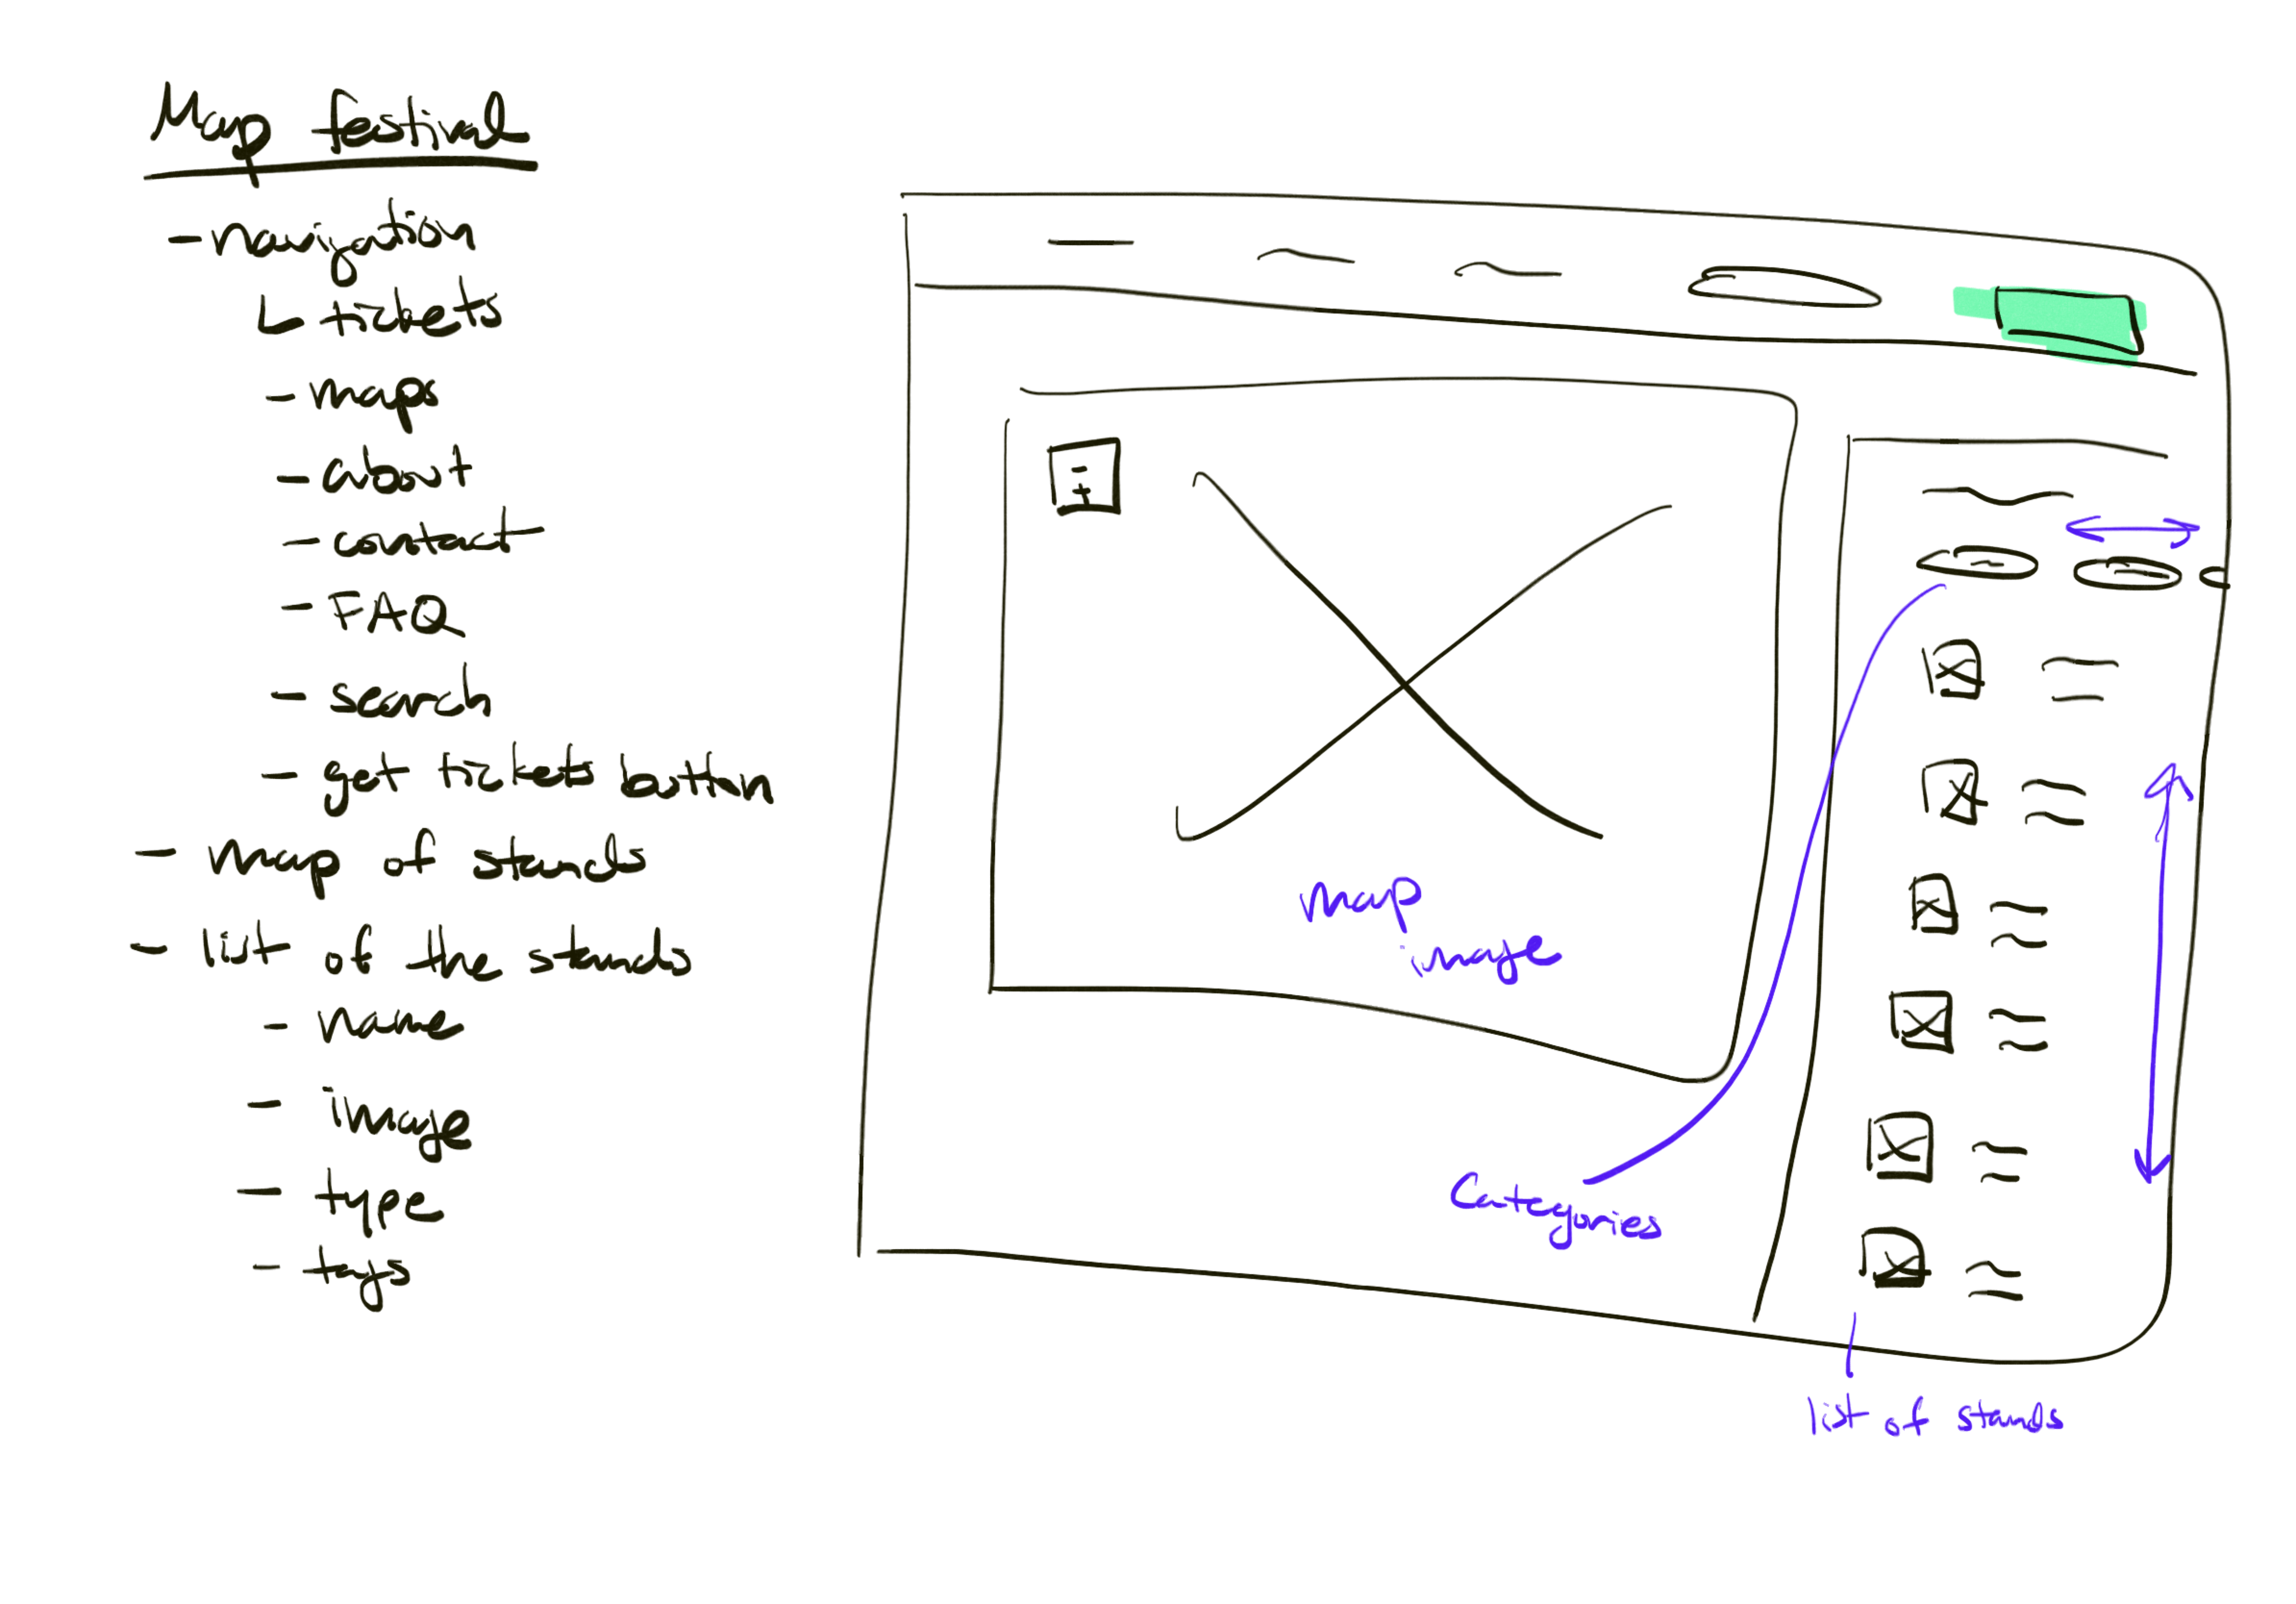 Map festival
- navigation
↳ tickets
- maps
- about
- contact
- FAQ
- search
- get tickets button
- map of stands
- list of the stands
- name
- image
- type
- tags
map
image
Categories
list of stands